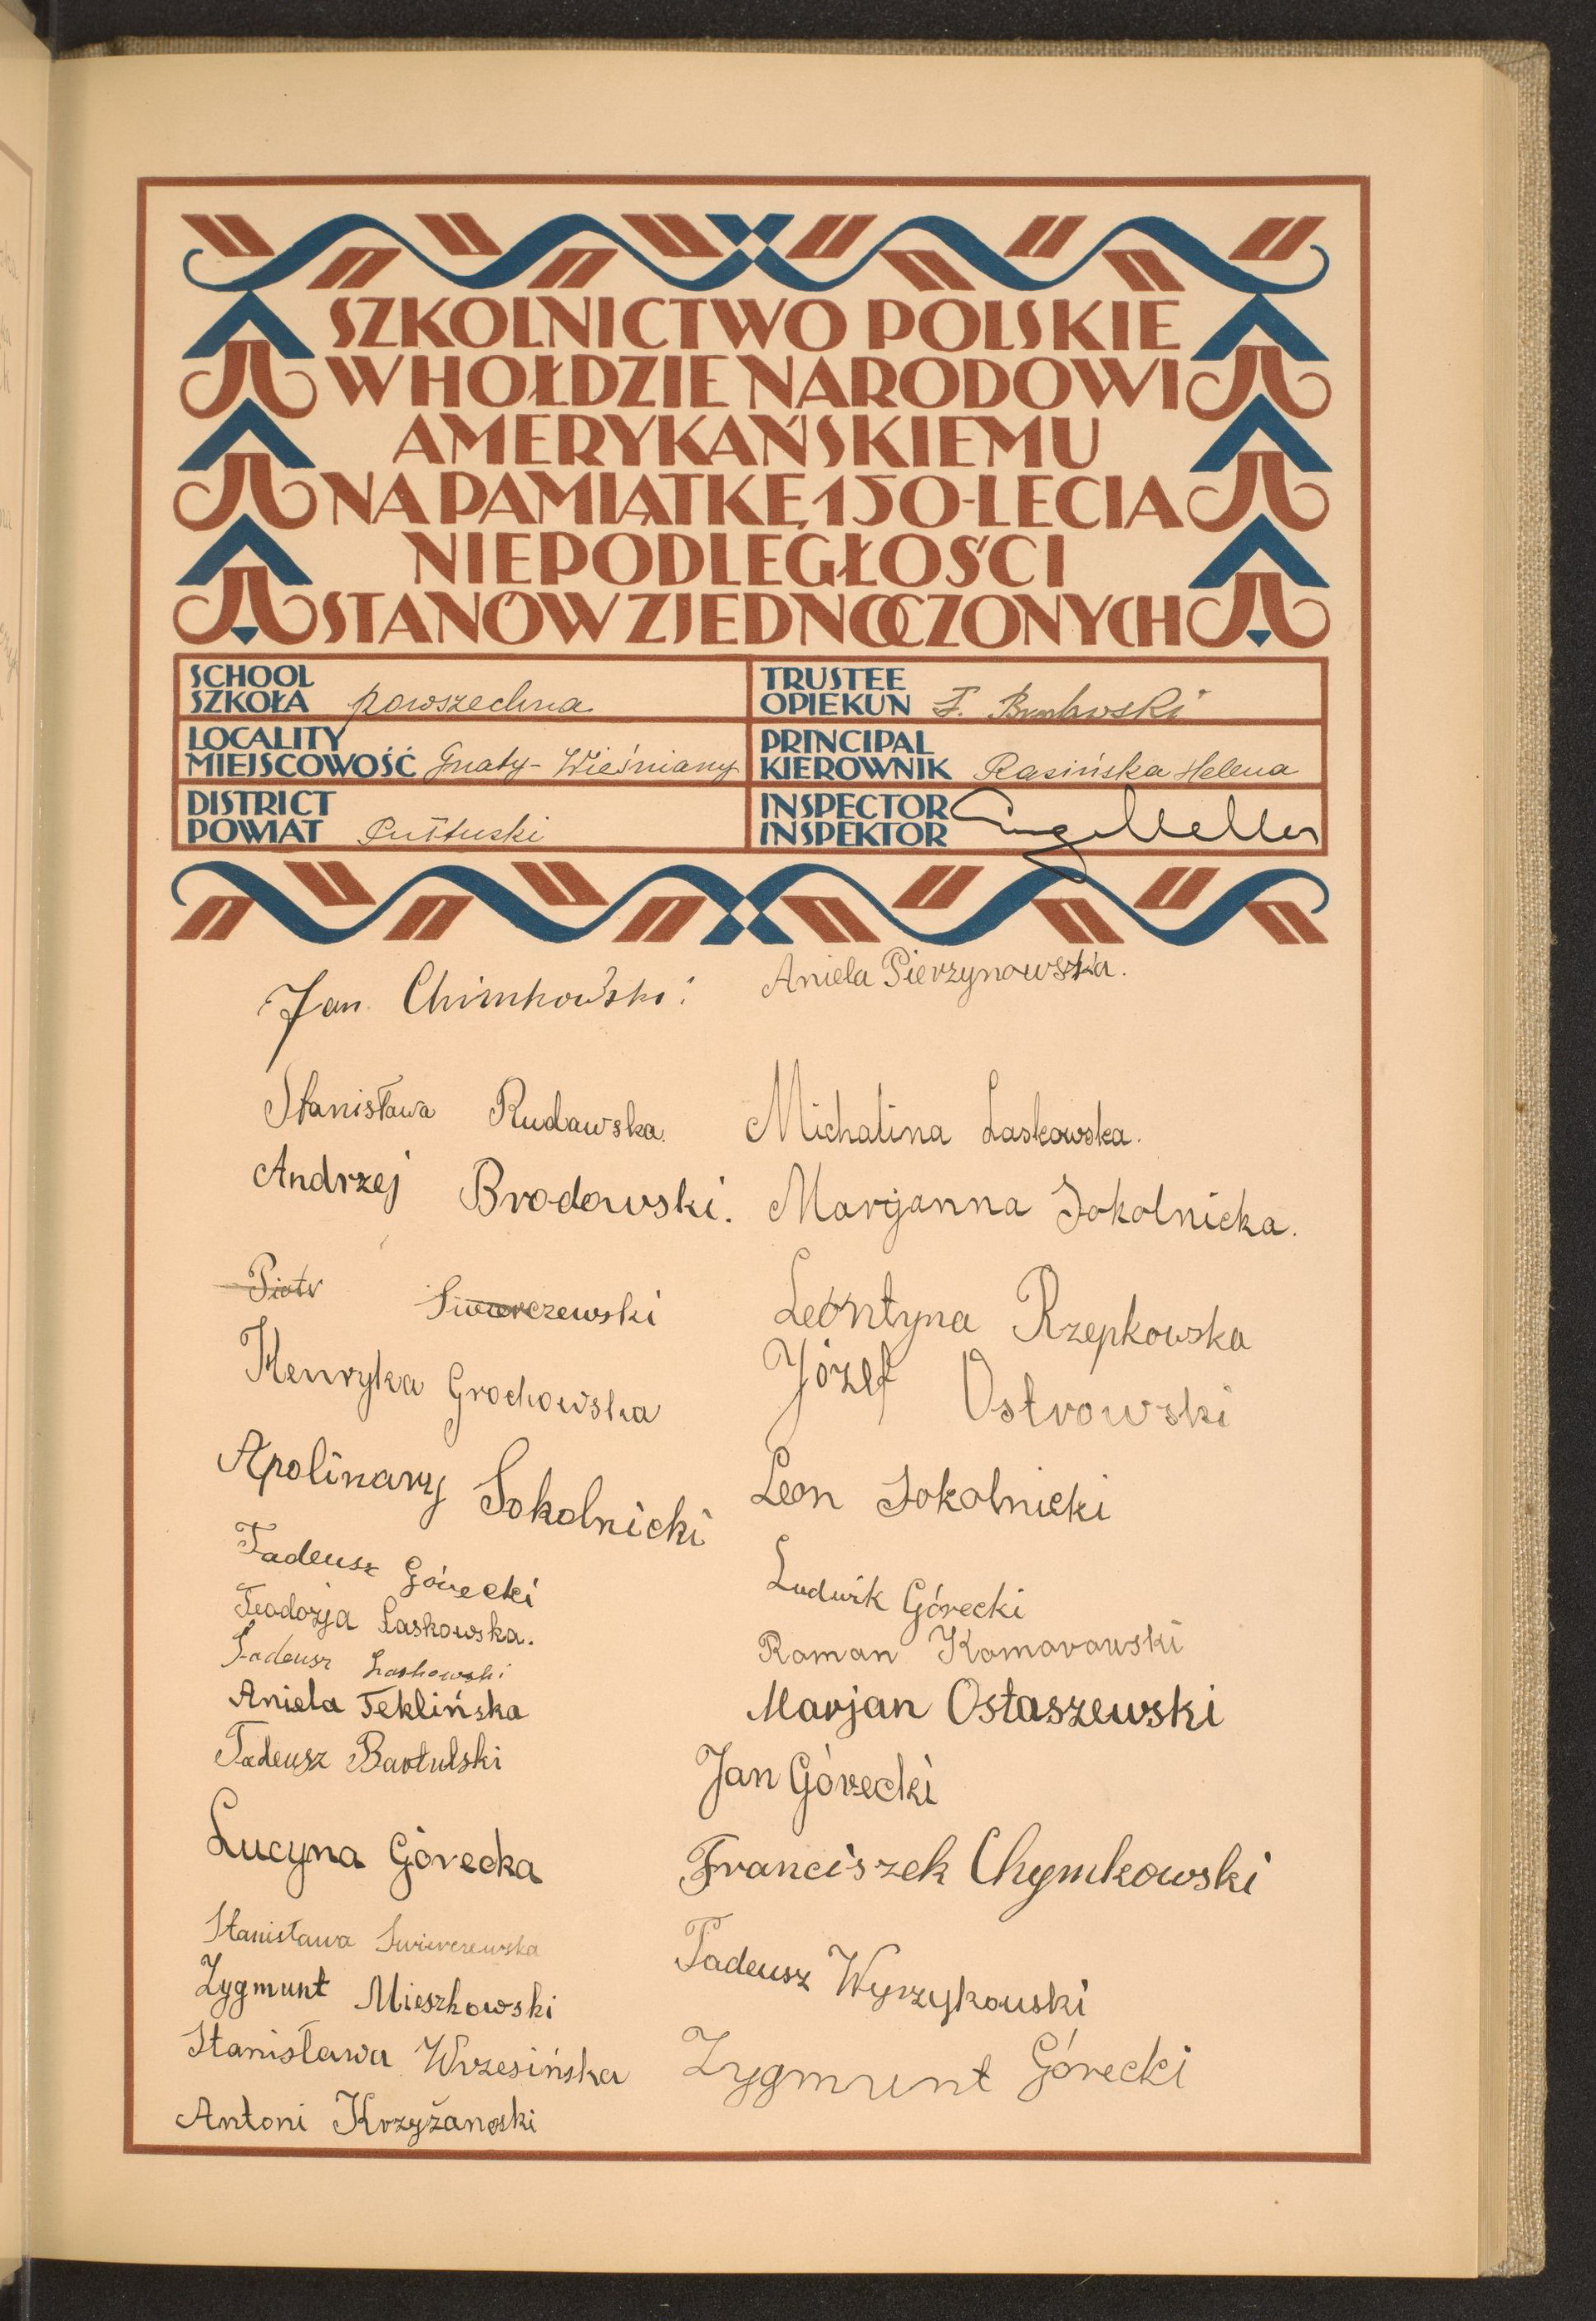 SZKOLNICTWO POLSKIE
W HOŁDZIE NARODOWI
AMERYKAŃSKIEMU
NA PAMIĄTKĘ 150-LECIA
NIEPODLEGŁOŚCI
STANÓW ZJEDNOCZONYCH
SCHOOL
SZKOŁA powszechna
TRUSTEE
OPIEKUN
LOCALITY
MIEJSCOWOŚĆ Gnaty-Wieśniany
PRINCIPAL
KIEROWNIK Rasińska Helena
DISTRICT
POWIAT Pułtuski
INSPECTOR
INSPEKTOR
Jan Chimkowski
Stanisława Rudawska.
Andrzej Brodowski.
Piotr Swierczewski
Henryka Grochowska
Apolinary Sokolnicki
Tadeusz Górecki
Teodozja Laskowska.
Tadeusz Laskowski
Aniela Teklińska
Tadeusz Bartulski
Lucyna Górecka
Stanisława Swierczewska
Zygmunt Mieszkowski
Stanisława Wrzesińska
Antoni Krzyżanoski
Aniela Pierzynowska.
Michalina Laskowska.
Marjanna Sokolnicka.
Leontyna Rzepkowska
Józef Ostrowski
Leon Sokolnicki
Ludwik Górecki
Roman Komorowski
Marjan Ostaszewski
Jan Górecki
Franciszek Chymkowski
Tadeusz Wyrzykowski
Zygmunt Górecki